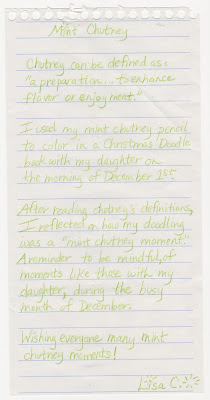 Mint Chutney
Chutney can be defined as:
"a preparation... to enhance
flavor or enjoyment."
I used my mint chutney pencil
to color in a Christmas Doodle
book with my daughter on
the morning of December 1st.
After reading chutney's definitions,
I reflected on how my doodling
was a "mint chutney moment."
A reminder to be mindful, of
moments like these with my
daughter, during the busy
month of December.
Wishing everyone many mint
chutney moments!
Lisa C.